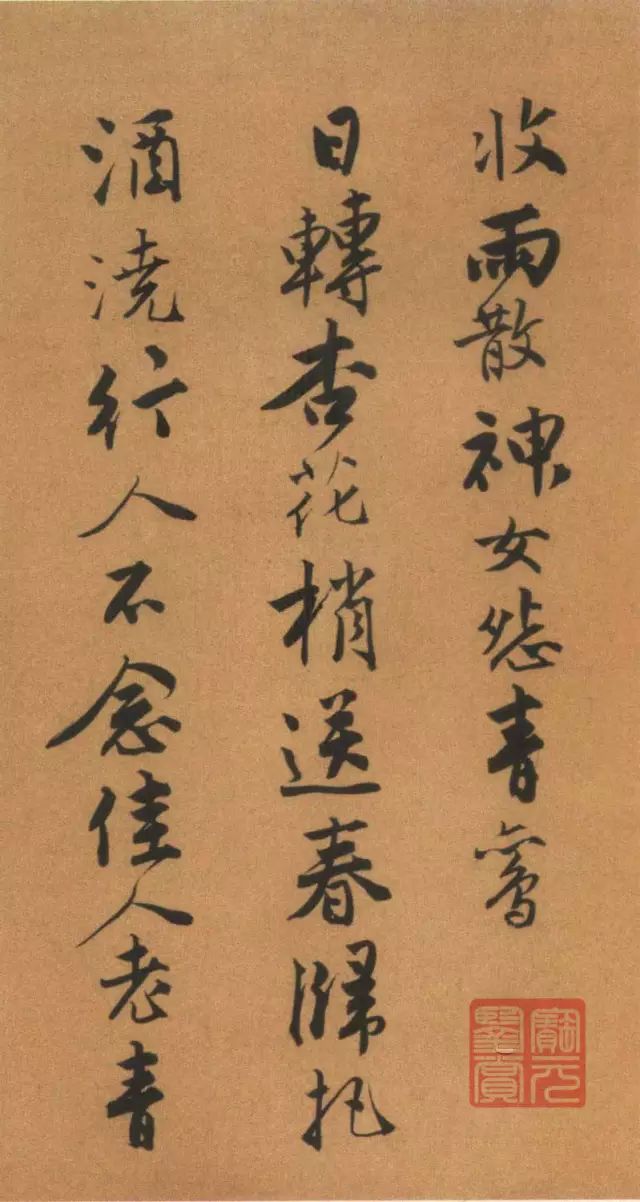 收雨散神女愁青鸾
日轉杏花梢送春歸把
酒澆行人不念佳人老青